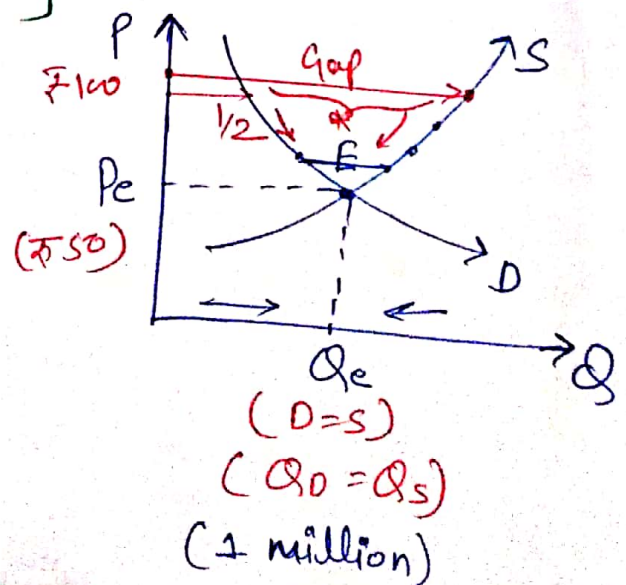 P
S
Gap
₹100
1/2
E
Pe
(₹50)
D
Qe
Q
(D=S)
(QD = QS)
(1 million)